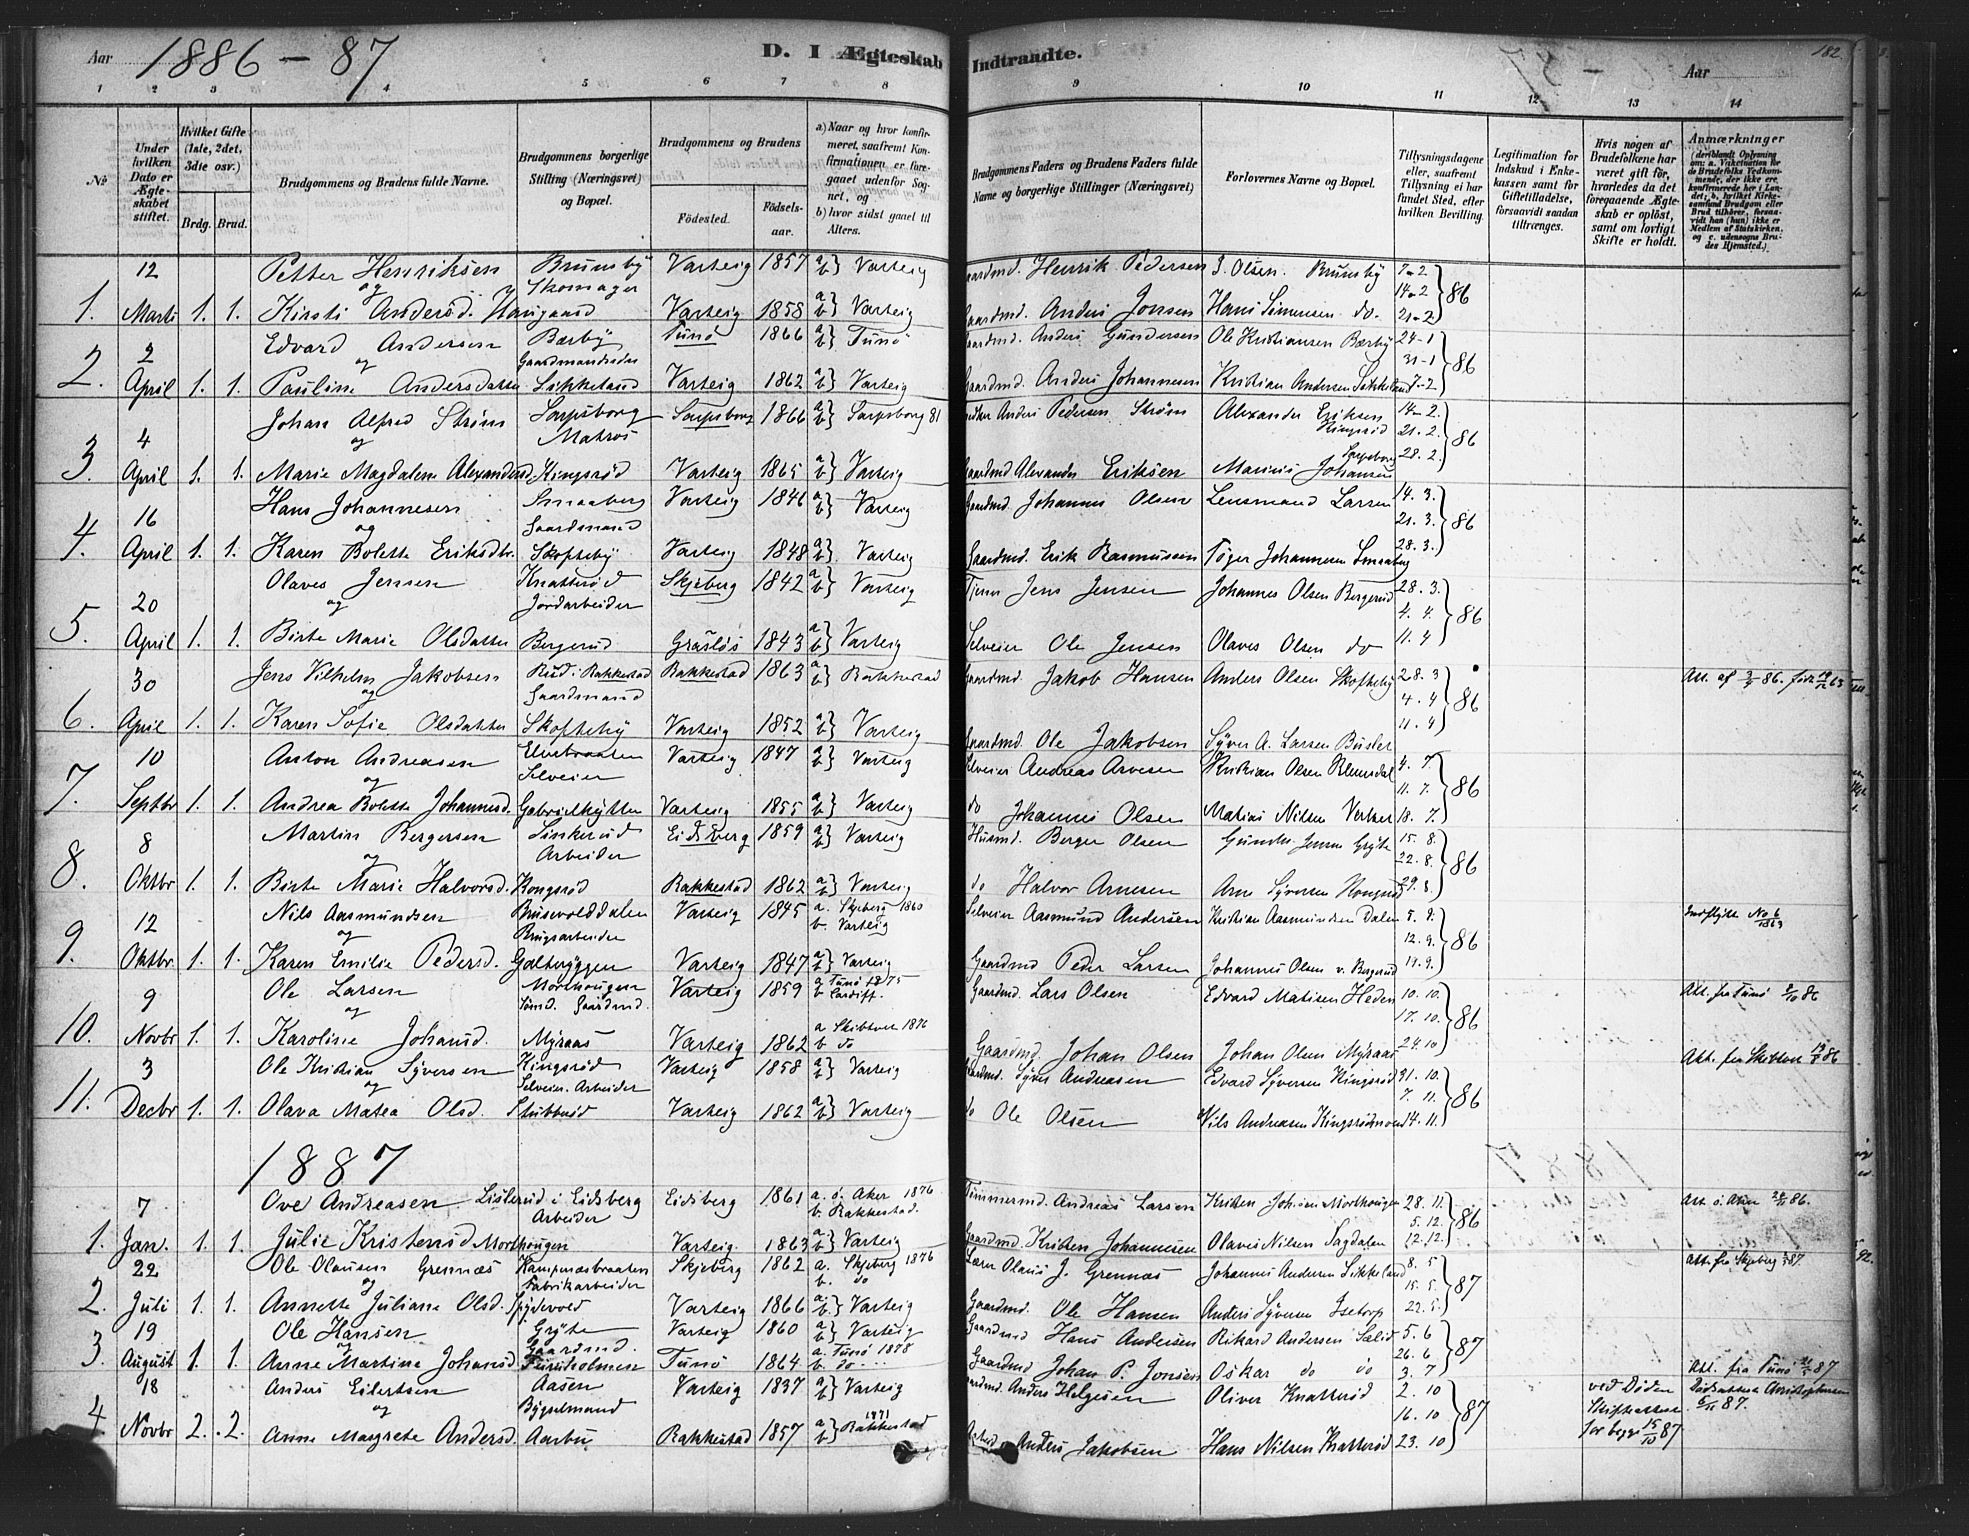 Aar 1886 – 87 D. I Ægteskab Indtraadte. Aar 182
1 2 3 4 5 6 7 8 9 10 11 12 13 14
№
Under hvilken Dato er Ægteskabet stiftet.
Hvilket Gifte (1ste, 2det, 3die osv.)
Brdg. Brud.
Brudgommens og Brudens fulde Navne.
Brudgommens borgerlige Stilling (Næringsvei) og Bopæl.
Brudgommens og Brudens
Fødested. Fødselsaar.
a) Naar og hvor konfirmeret, saafremt Konfirmationen er foregaaet udenfor Sognet, og
b) hvor sidst gaaet til Alters.
Brudgommens Faders og Brudens Faders fulde Navne og borgerlige Stillinger (Næringsvei)
Forlovernes Navne og Bopæl.
Tillysningsdagene eller, saafremt Tillysning ei har fundet Sted, efter hvilken Bevilling.
Legitimation for Indskud i Enkekassen samt for Giftetilladelse, forsaavidt saadan tiltrænges.
Hvis nogen af Brudefolkene har været gift før, hvorledes da det foregaaende Ægteskab er opløst, samt om lovligt Skifte er holdt.
Anmærkninger
(deriblandt Oplysning om: a. Vakcination for de Brudefolks Vedkommende, der ikke ere konfirmerede her i Landet; b. hvilket Kirkesamfund Brudgom eller Brud tilhører, forsaavidt han (hun) ikke er Medlem af Statskirken, og c. udensogns Brudes Hjemsted.)
12 Petter Henriksen Brunsby Varteig 1857 a b } Varteig Gaardmd. Henrik Pedersen S. Olsen Brunsby 7-2
og Skomager 14-2 } 86
1. Marts 1. 1. Kirsti Andersd. Haugaard Varteig 1858 a b } Varteig Gaardmd. Anders Jonsen Hans Simensen do. 21-2
2 Edvard Andersen Bærby Tunø 1866 a b } Tunø Gaardmd. Anders Gundersen Ole Kristiansen Bærby 24-1
og Gaardmandssøn 31-1 } 86
2. April 1. 1. Pauline Andersdatter Sikkeland Varteig 1862 a b } Varteig Gaardmd. Anders Johannesen Kristian Andersen Sikkeland 7-2
4 Johan Alfred Strøm Sarpsborg Sarpsborg 1866 a b } Sarpsborg 81 Anders Pedersen Strøm Alexander Eriksen Kingsrød 14-2.
og Matros 21. 2. } 86
3. April 1. 1. Marie Magdalene Alexandersd. Kingsrød Varteig 1865 a b } Varteig Gaardmd Alexander Eriksen Marinus Johansen Sarpsborg 28. 2.
16 Hans Johannesen Smaaberg Varteig 1846 a b } Varteig Gaardmd. Johannes Olsen Lensmand Larsen 14. 3.
og Gaardmand 21. 3. } 86
4. April 1. 1. Karen Bolette Eriksdtr. Skofteby Varteig 1848 a b } Varteig Gaardmd. Erik Rasmussen Tøger Johannesen Smaaberg 28. 3.
20 Olaves Jensen Knatterød Skjeberg 1842 a b } Varteig Jens Jensen Johannes Olsen Bergerud 28. 3.
og Jordarbeider 4. 4. } 86
5. April 1. 1. Birte Marie Olsdatter Bergerud Grasløs 1843 a b } Varteig Selveier Ole Jensen Olaves Olsen do 11. 4
30 Jens Vilhelm Jakobsen Rud i Rakkestad Rakkestad 1863 a b } Rakkestad Gaardmd. Jakob Hansen Anders Olsen Skofteby 28. 3 Att. af 3/4 86.
og Gaardmand 4-4 } 86
6. April 1. 1. Karen Sofie Olsdatter Skofteby Varteig 1852 a b } Varteig Gaardmd. Ole Jakobsen Syver A. Larsen 11. 4
10 Anton Andreasen Elvebraaten Varteig 1847 a b } Varteig Selveier Andreas Arvesen Kristian Olsen 4. 7.
og Selveier 11. 7. } 86
7. Septbr 1. 1. Andrea Bolette Johannesd. Gabrielhytten Varteig 1855 a b } Varteig do Johannes Olsen Matias Nilsen 18. 7.
8 Martin Bergersen Linkerud Eidsberg 1859 a b } Varteig Husmd. Berger Olsen Gunder Jensen Gryte 15. 8.
og Arbeider 22. 8. } 86
8. Oktbr 1. 1. Birte Marie Halvorsd. Kongsrød Rakkestad 1862 a b } Varteig do Halvor Arnesen Arne Syversen 29. 8.
12 Nils Aasmundsen Brusevolddalen Varteig 1845 a. Skjeberg 1860 b. Varteig Selveier Aasmund Andersen Kristian Aasmundsen Dalen 5. 9. Indflytte No 6 1863
og Brugsarbeider 12. 9. } 86
9. Oktbr 1. 1. Karen Emilie Pedersd. Galteryggen Varteig 1847 a b } Varteig Gaardmd Peder Larsen Johannes Olsen v. Bergerud 19. 9.
9 Ole Larsen Morthougen Varteig 1859 a Tunø 1875 b Cardiff. Gaardmd. Lars Olsen Edvard Matisen Heden 10. 10. Att. fra Tunø 86
og Sømd. Gaardmd. 17. 10. } 86
10. Novbr 1. 1. Karoline Johansd. Myraas Varteig 1862 a Skibtvet 1876 b do Gaardmd. Johan Olsen Johan Olsen Myraas 24. 10
3 Ole Kristian Syversen Kingsrød Varteig 1858 a b } Varteig Gaardmd. Syver Andreasen Edvard Syversen Kingsrød 31. 10. Att. fra Skibtvet 86
og Selveier. Arbeider 7. 11. } 86
11. Decbr 1. 1. Olava Matea Olsd. Stubberød Varteig 1862 a b } Varteig do Ole Olsen Nils Andreasen 14. 11.
1887
7 Ove Andreasen Listerud i Eidsberg Eidsberg 1861 a. ø. Aker 1876 b. Rakkestad. Tømmermd. Andreas Larsen Kristen Johnsen Morthougen 28. 11. Att ø. Aker 86.
Arbeider 5. 12. } 86
1. Jan. 1. 1. Julie Kristensd Morthougen Varteig. 1863 a b } Varteig Gaardmd. Kristen Johannesen Olaves Nilsen Sagdalen 12. 12.
22 Ole Olausen Grennæs Kampenesbraaten Skjeberg 1862 a. Skjeberg 1876 b. do Lærer Olaus J. Grennæs Johannes Andersen Sikkeland 8. 5 Att. fra Skjeberg 87.
og Fabrikarbeider 15. 5. } 87
2. Juli 1. 1. Annette Juliane Olsd. Spydevold Varteig 1866 a b } Varteig Gaardmd. Ole Hansen Anders Syversen Isetorp 22. 5.
19 Ole Hansen Gryte Varteig 1860 a b } Varteig Gaardmd Hans Andersen Rikard Andersen Sælid 5. 6
og Gaardmd. 26. 6 } 87
3. August 1. 1. Anne Martine Johansd Furuholmen Tunø 1864 a. Tunø 1878 b. do Gaardmd Johan P. Jonsen Oskar do do 3. 7 Att. fra Tunø 87
18 Anders Eilertsen Aasen Varteig 1837 a b } Varteig Gaardmd. Anders Helgesen Oliver Knatterød 2. 10 ved Døden Dødsattest
og Bygselmand 16. 10 } 87 Skifteattest 87.
4. Novbr 2. 2. Anne Margrete Andersd. Aarbu Rakkestad 1857 a b } 1871 Rakkestad Arbeid Anders Jakobsen Hans Nilsen Knatterød 23. 10 for begge 15/10 87